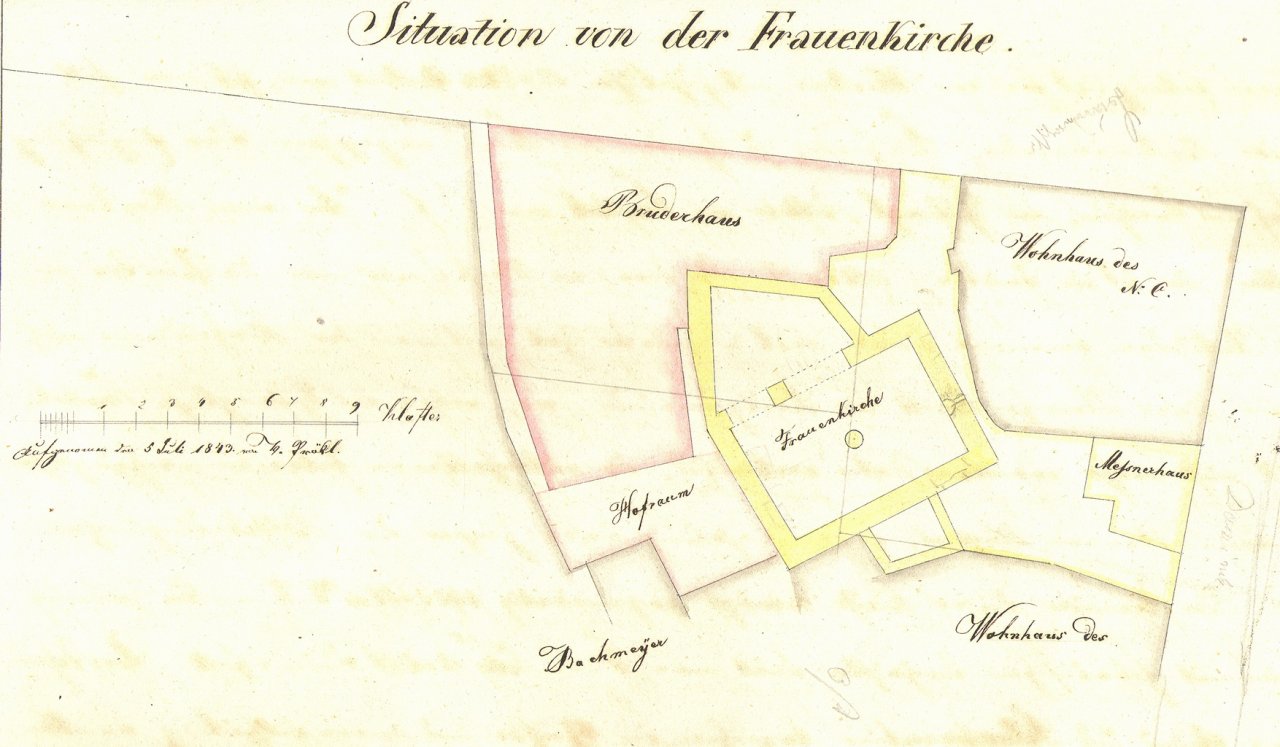 Situation von der Frauenkirche.
Bruderhaus
Wohnhaus des
N. C.
1 2 3 4 5 6 7 8 9 Klafter
Aufgenomen den 5 Juli 1843.
Frauenkirche
Meßnerhaus
Hofraum
Wohnhaus des
Bachmeÿer